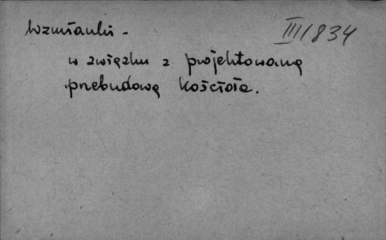 Wzmianki -
III/834
w związku z projektowaną
przebudową kościoła.